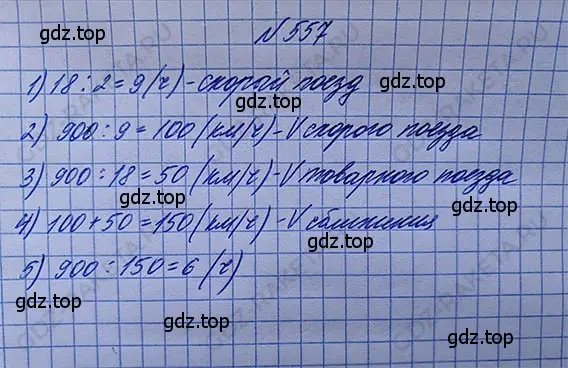 № 557
1) 18 : 2 = 9 (ч) - скорый поезд
2) 900 : 9 = 100 (км/ч) - V скорого поезда
3) 900 : 18 = 50 (км/ч) - V товарного поезда
4) 100 + 50 = 150 (км/ч) - V сближения
5) 900 : 150 = 6 (ч)
gdz.top
gdz.top
gdz.top
gdz.top
gdz.top
gdz.top
gdz.top
gdz.top
gdz.top
gdz.top
gdz.top
GDZ-RAKETA.RU